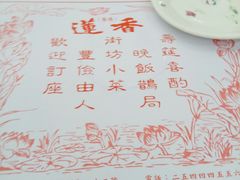 蓮香
壽筵喜酌
晚飯鵲局
街坊小菜
豐儉由人
歡迎訂座
電話：二五四四四五五六